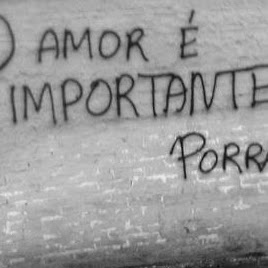 O AMOR É
IMPORTANTE
PORRA